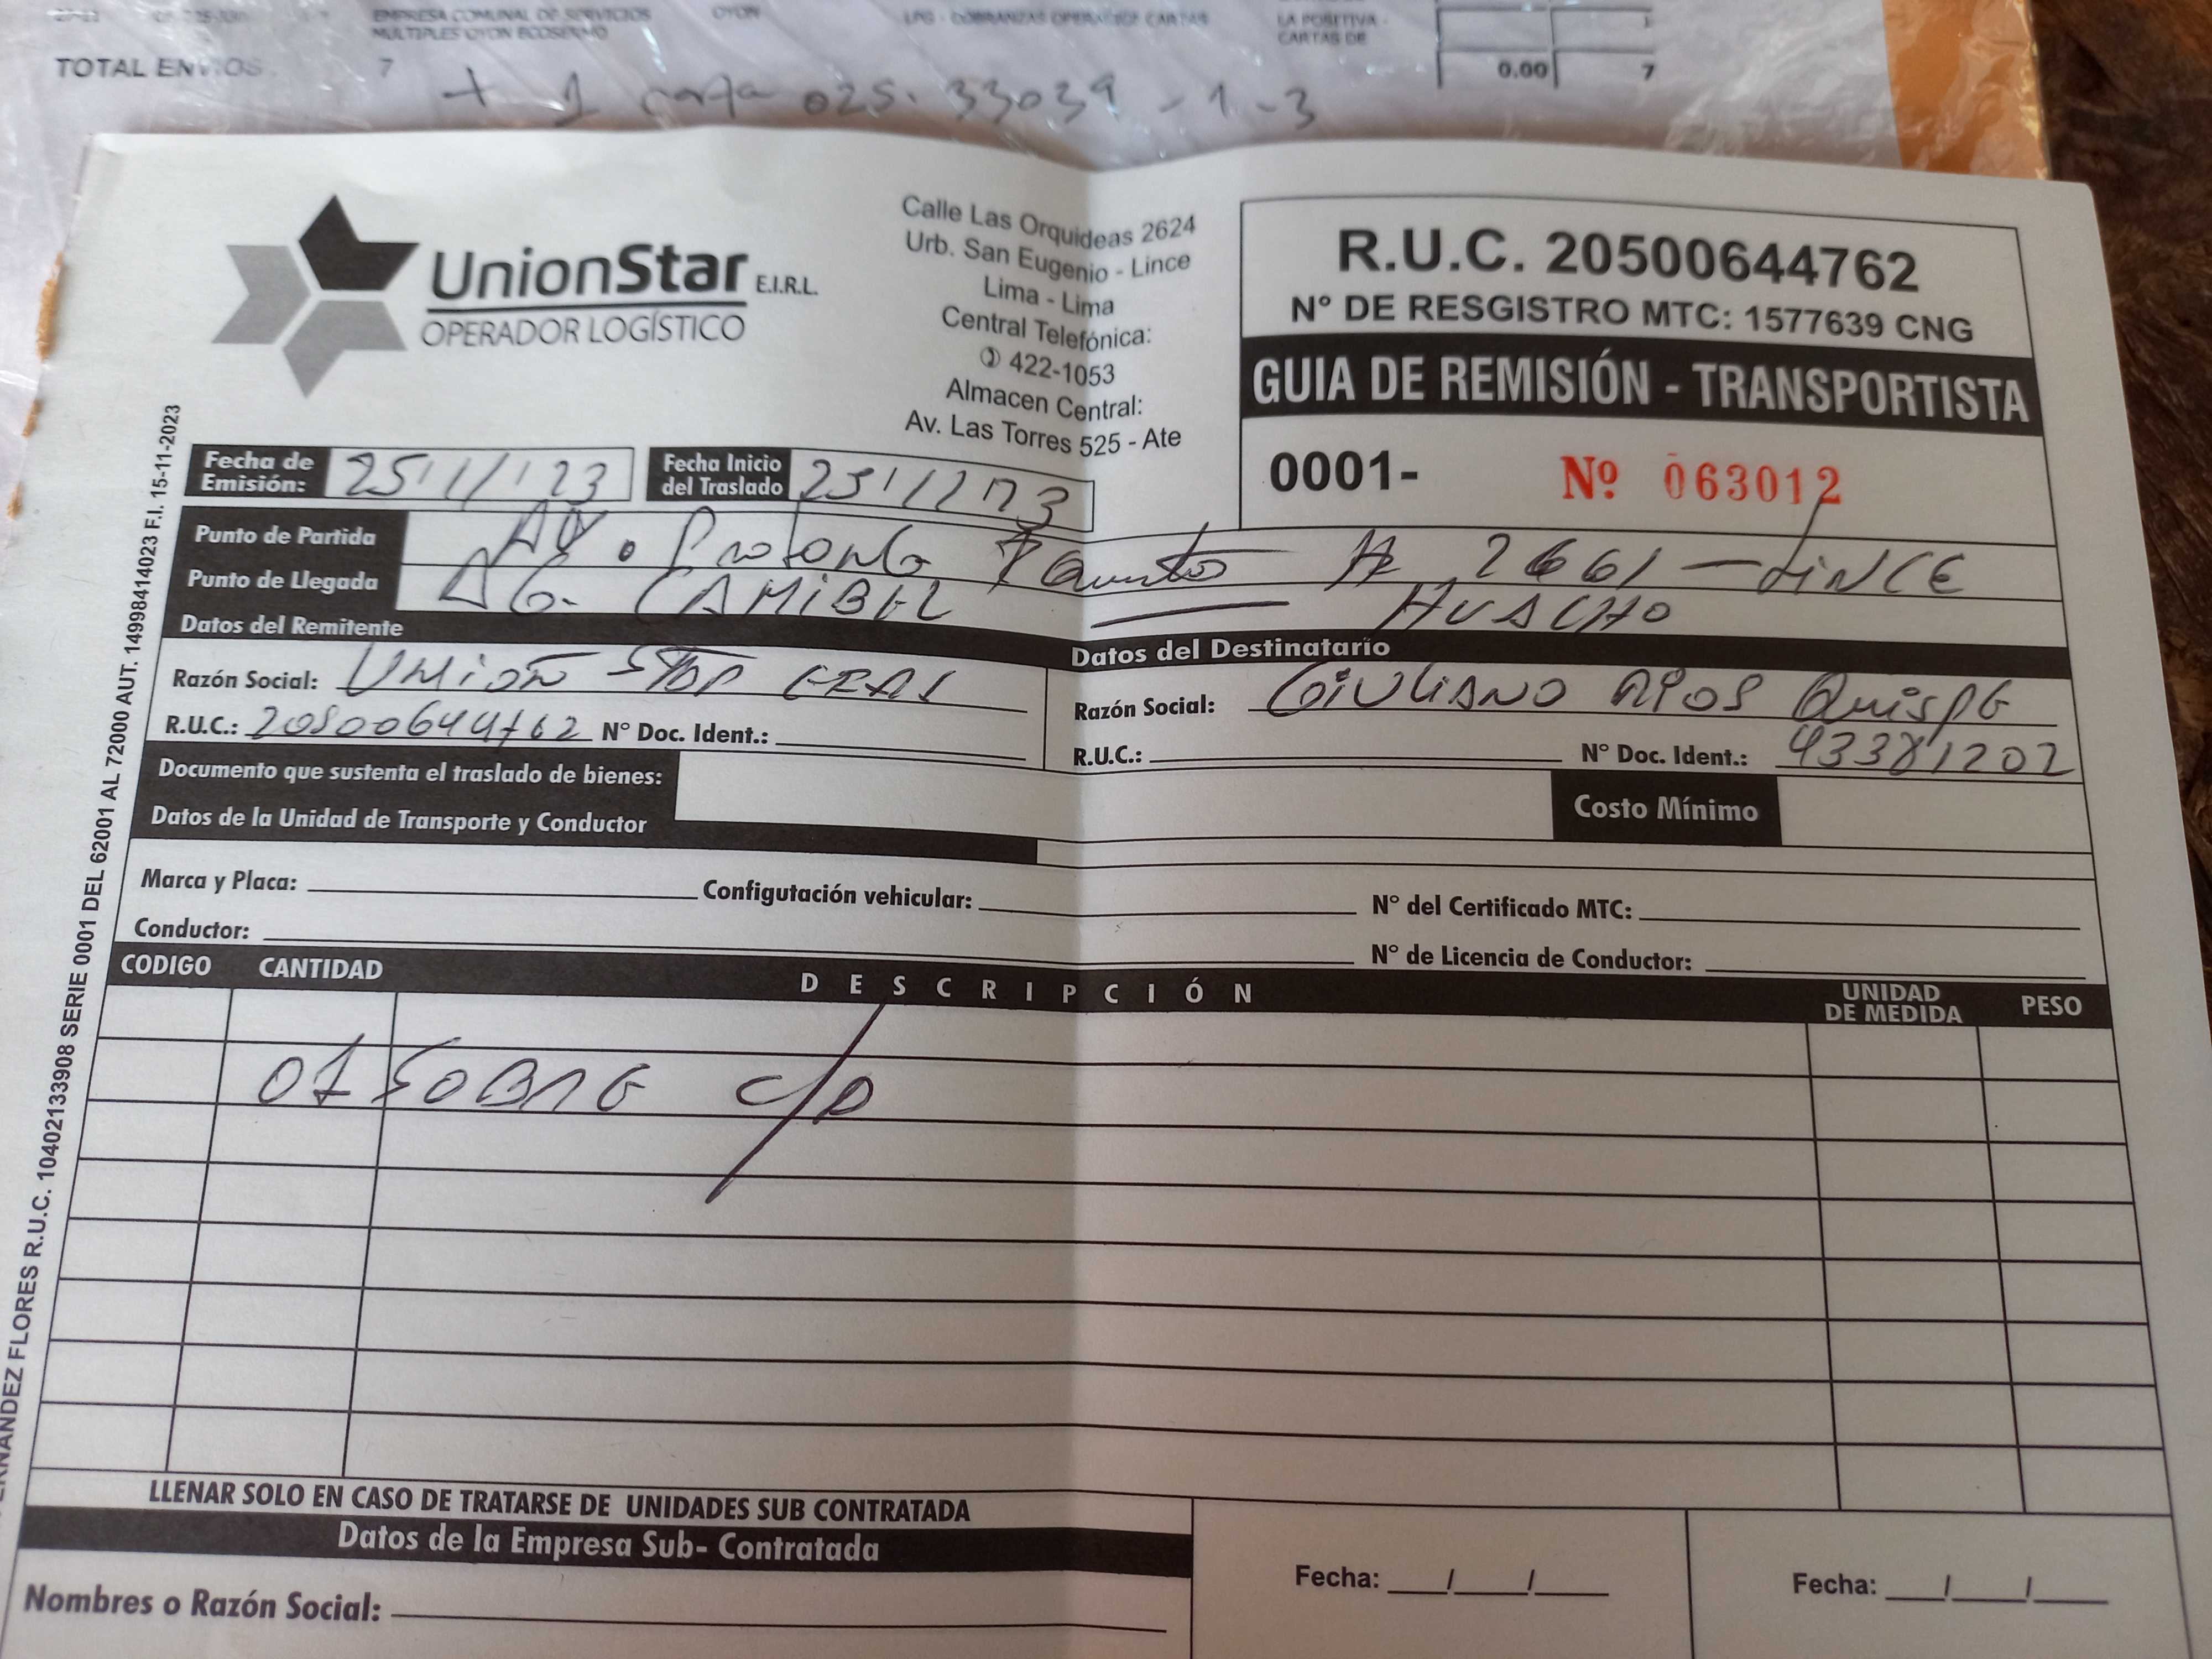 EMPRESA COMUNAL DE SERVICIOS
MULTIPLES OYON ECOSERMO
OYON
LPG - COBRANZAS OPERACIONES CARTAS
LA POSITIVA -
CARTAS DE
TOTAL ENVIOS 7
0.00 7
+ 1 carta 025.33039 - 1 - 3
UnionStar E.I.R.L.
OPERADOR LOGÍSTICO
Calle Las Orquideas 2624
Urb. San Eugenio - Lince
Lima - Lima
Central Telefónica:
✆ 422-1053
Almacen Central:
Av. Las Torres 525 - Ate
R.U.C. 20500644762
N° DE RESGISTRO MTC: 1577639 CNG
GUIA DE REMISIÓN - TRANSPORTISTA
0001- Nº 063012
Fecha de Emisión: 25/11/23
Fecha Inicio del Traslado 25/11/23
Punto de Partida AV. Prolong Iquitos # 2661 - LINCE
Punto de Llegada AG. CAMIBEL — HUACHO
Datos del Remitente
Razón Social: UNION STAR EIRL
R.U.C.: 20500644762 N° Doc. Ident.:
Datos del Destinatario
Razón Social: GIULIANO RIOS QuispE
R.U.C.: N° Doc. Ident.: 43381202
Documento que sustenta el traslado de bienes:
Costo Mínimo
Datos de la Unidad de Transporte y Conductor
Marca y Placa: Configutación vehicular: N° del Certificado MTC:
Conductor: N° de Licencia de Conductor:
CODIGO CANTIDAD DESCRIPCIÓN UNIDAD DE MEDIDA PESO
01 SOBRE C/D
LLENAR SOLO EN CASO DE TRATARSE DE UNIDADES SUB CONTRATADA
Datos de la Empresa Sub- Contratada
Nombres o Razón Social:
Fecha: ___/___/___
Fecha: ___/___/___
FERNANDEZ FLORES R.U.C. 10402133908 SERIE 0001 DEL 62001 AL 72000 AUT. 14998414023 F.I. 15-11-2023